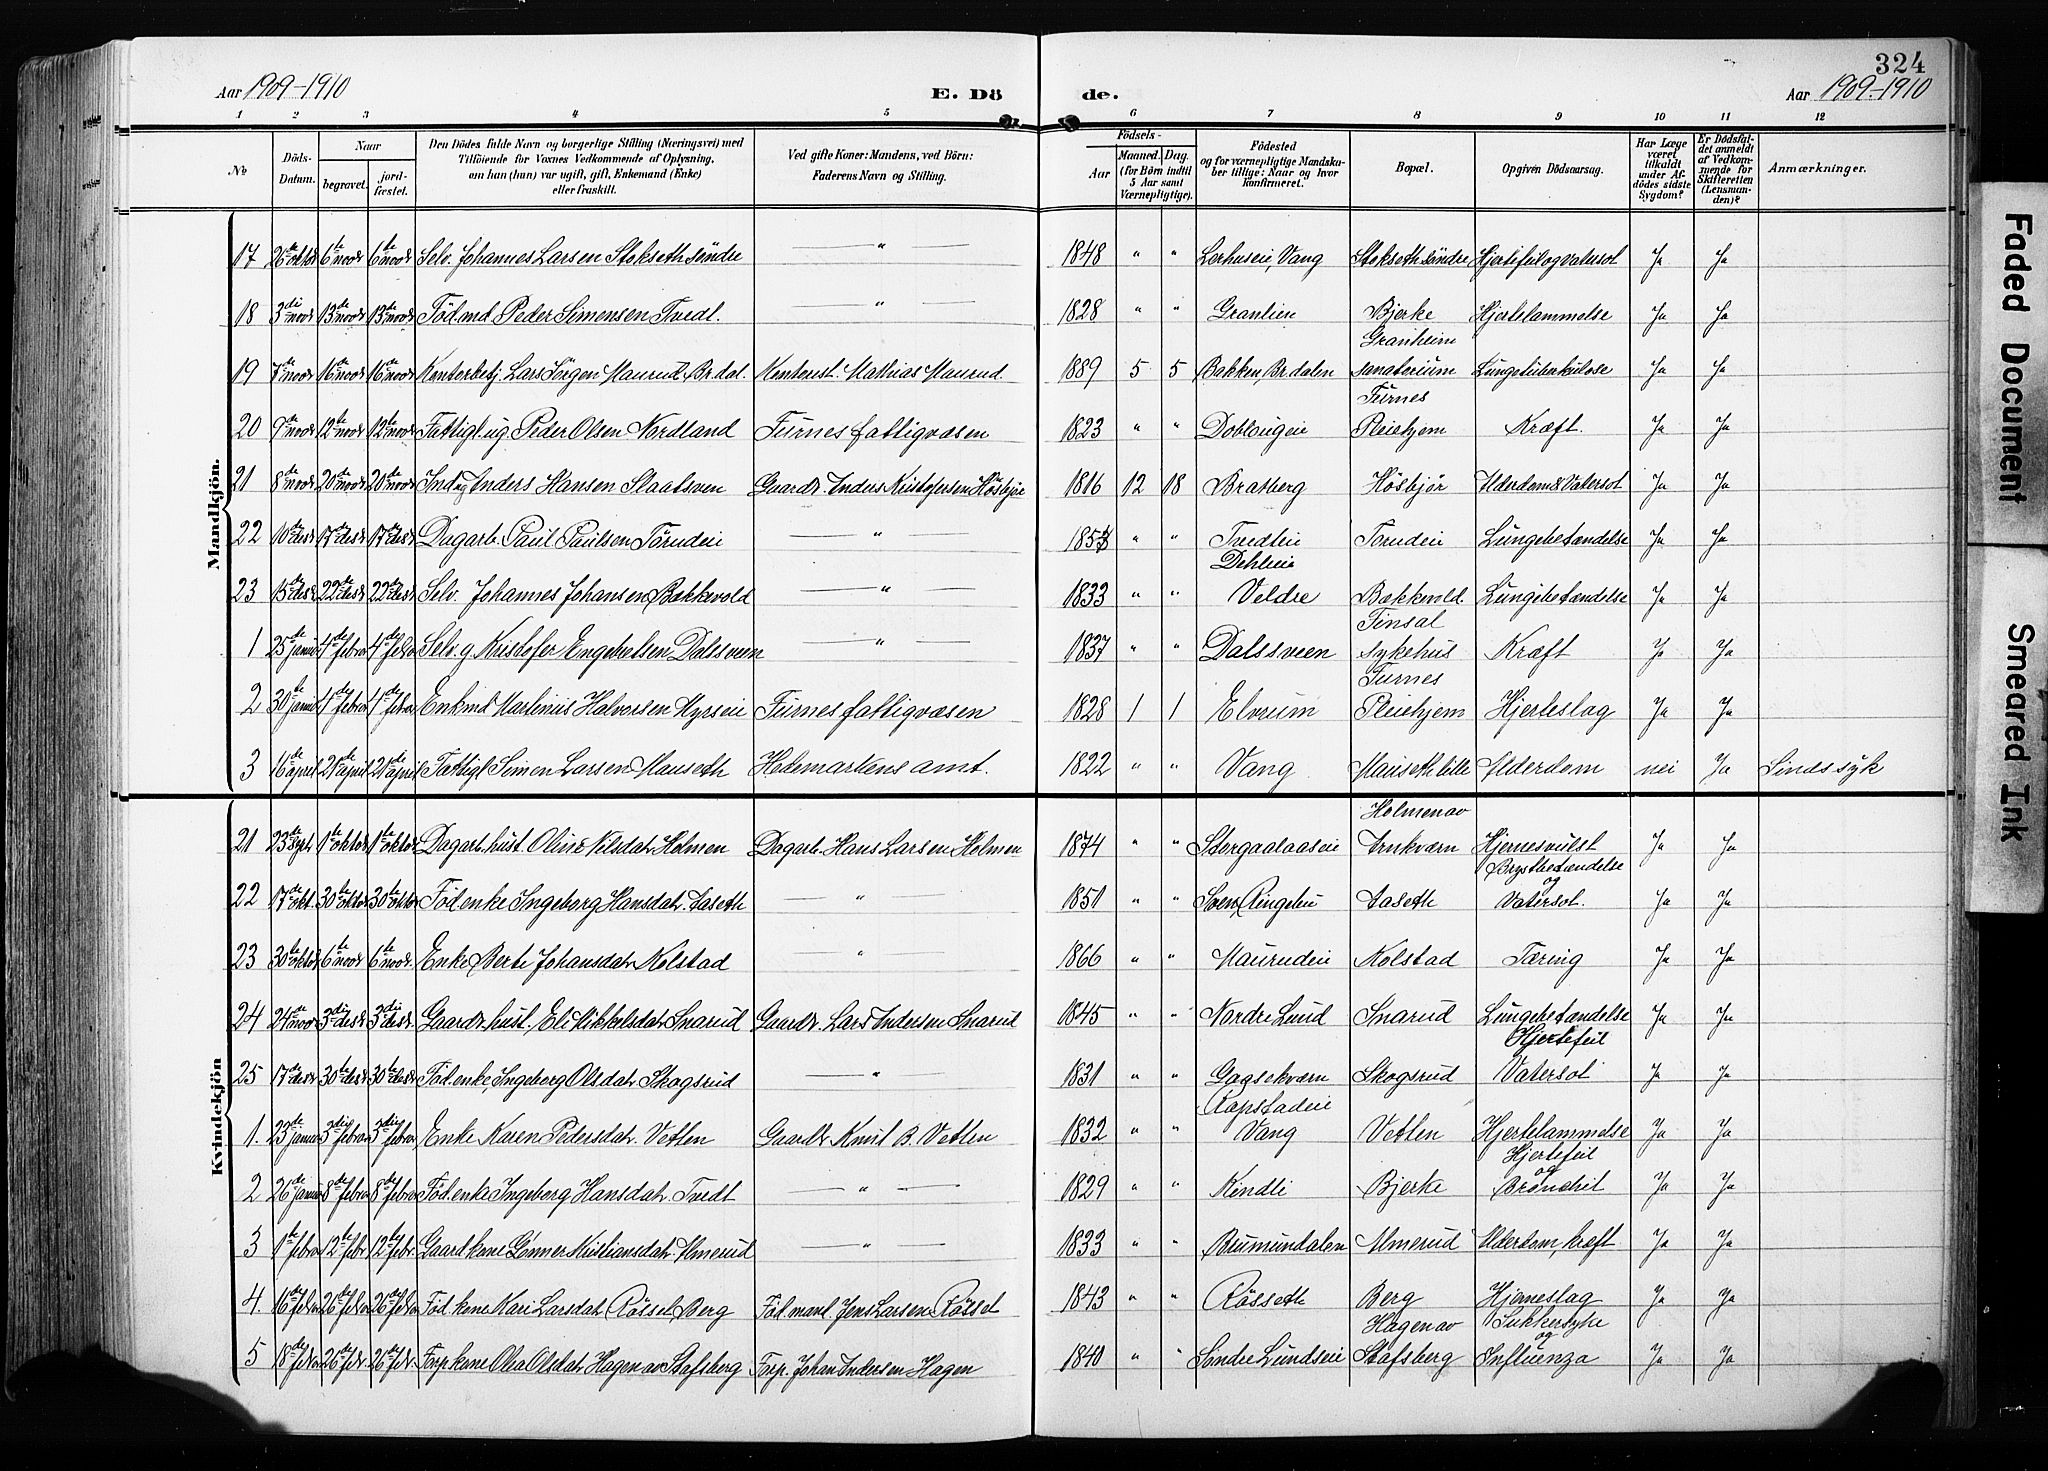 324
Aar 1909-1910 E. Dö de. Aar 1909-1910
1 2 3 4 5 6 7 8 9 10 11 12
No Döds-Datum. Naar begravet. jordfæstet. Den Dödes fulde Navn og borgerlige Stilling (Næringsvei) med Tilföiende for Voxnes Vedkommende af Oplysning, om han (hun) var ugift, gift, Enkemand (Enke) eller fraskilt. Ved gifte Koner: Mandens, ved Börn: Faderens Navn og Stilling. Födsels- Aar Maaned. Dag. (for Börn indtil 5 Aar samt Værnepligtige). Födested og for værnepligtige Mandskaber tillige: Naar og hvor konfirmeret. Bopæl. Opgiven Dödsaarsag. Har Læge været tilkaldt under Afdödes sidste Sygdom? Er Dödsfaldet anmeldt af Vedkommende for Skifteretten (Lensmanden)? Anmærkninger.
Mandkjön.
17 26de oktbr 6te novbr 6te novbr Selv. Johannes Larsen Stokseth söndre " 1848 " " Lerhuseie, Vang Stokseth söndre Hjertefeil og vatersot Ja Ja
18 3di novbr 13de novbr 13de novbr Föd.md. Peder Simensen Tvedt. " 1828 " " Granlien Bjerke Hjertelammelse Ja Ja
19 7de novbr 16de novbr 16de novbr Kontorbetj. Lars Jörgen Maurud, Br.dal. Kontorist. Mathias Maurud. 1889 5 5 Bakken, Br.dalen Granheim sanatorium Lungetuberkulose Ja Ja
20 9de novbr 12te novbr 12te novbr Fattigl. ug. Peder Olsen Nordland Furnes fattigvæsen 1823 " " Doblougeie Furnes Pleiehjem Kræft. Ja Ja
21 8de novbr 20de novbr 20de novbr Ind. ug Anders Hansen Slaatsven Gaardbr. Anders Kristofersen Hösbjör 1816 12 18 Bratberg Hösbjör Alderdom & Vatersot Ja Ja
22 10de desbr 17de desbr 17de desbr Dagarb. Paul Paulsen Törudeie " 185 " " Tvedteie Torudeie Lungebetændelse Ja Ja
23 15de desbr 22de desbr 22de desbr Selv. Johannes Johansen Bakkevold " 1833 " " Dehlieie Veldre Bakkevold. Lungebetændelse Ja Ja
1 25de januar 4de febr 4de febr Selv. g. Kristofer Engebretsen Dalssveen " 1837 " " Dalssveen Finsal sykehus Kræft Ja Ja
2 30te januar 4de febr 4de febr Enkmd Martinius Halvorsen Myrseie Furnes fattigvæsen 1828 1 1 Elvrum Furnes Pleiehjem Hjerteslag Ja Ja
3 16de april 21de april 21de april Fattigl Simen Larsen Mauseth Hedemarkens amt. 1822 " " Vang Mauseth lille Alderdom nei Ja Sindssyk
Kvindekjön
21 23de Spt. 1te oktbr 1te oktbr Dagarb. hust. Oline Nilsdatr Holmen Dagarb. Hans Larsen Holmen 1874 " " Storgaalaaseie Holmen av Arnkværn Hjernesvulst Ja Ja
22 17de okt. 30te oktbr 30te oktbr Föd.enke Ingeborg Hansdatr. Aaseth " 1851 " " Sven, Ringebu Aaseth Brystbetændelse og Vatersot. Ja Ja
23 30te oktbr 6te novbr 6te novbr. Enke Berte Johansdatr Kolstad " 1866 " " Maurudeie Kolstad Tæring Ja Ja
24 24de novbr 3di desbr 3di desbr Gaardbr. hust. Eli Mikkelsdatr Snarud Gaardbr. Lars Andersen Snarud 1845 " " Nordre Lund Snarud Lungebetændelse Ja Ja
25 17de desbr 30te desbr 30te desbr Föd.enke, Ingeborg Olsdatr. Skogsrud " 1831 " " Gaasekværn Skogsrud Hjertefeil Vatersot Ja Ja
1. 23de januar 3die febr 3die febr Enke Karen Pedersdatr. Vetten Gaardbr Knut B. Vetten 1832 " " Rapstadeie Vang Vetten Hjertelammelse Ja Ja
2 26de januar 8de febr 8de febr Föd.enke Ingeborg Hansdatr. Tvedt " 1829 " " Kindli Bjerke Hjertefeil og Bronchit Ja Ja
3 1te febr 12te febr. 12te febr. Gaardkone Gönner Kristiansdatr Almerud " 1833 " " Brumundalen Almerud Alderdom, kræft Ja Ja
4 16de febr 26de febr 26de febr Föd.kone Kari Larsdatr Rösset, Berg Föd.mand Jens Larsen Rösset 1843 " " Rösseth Berg Hjerneslag Ja Ja
5 18de febr. 26de febr. 26de febr. Forp.kone Olea Olsdatr Hagen av Stafsberg Forp. Johan Andersen Hagen 1840 " " Söndre Lundseie Hagen av Stafsberg Sukkersyke og Influenza Ja Ja
Faded Document
Smeared Ink